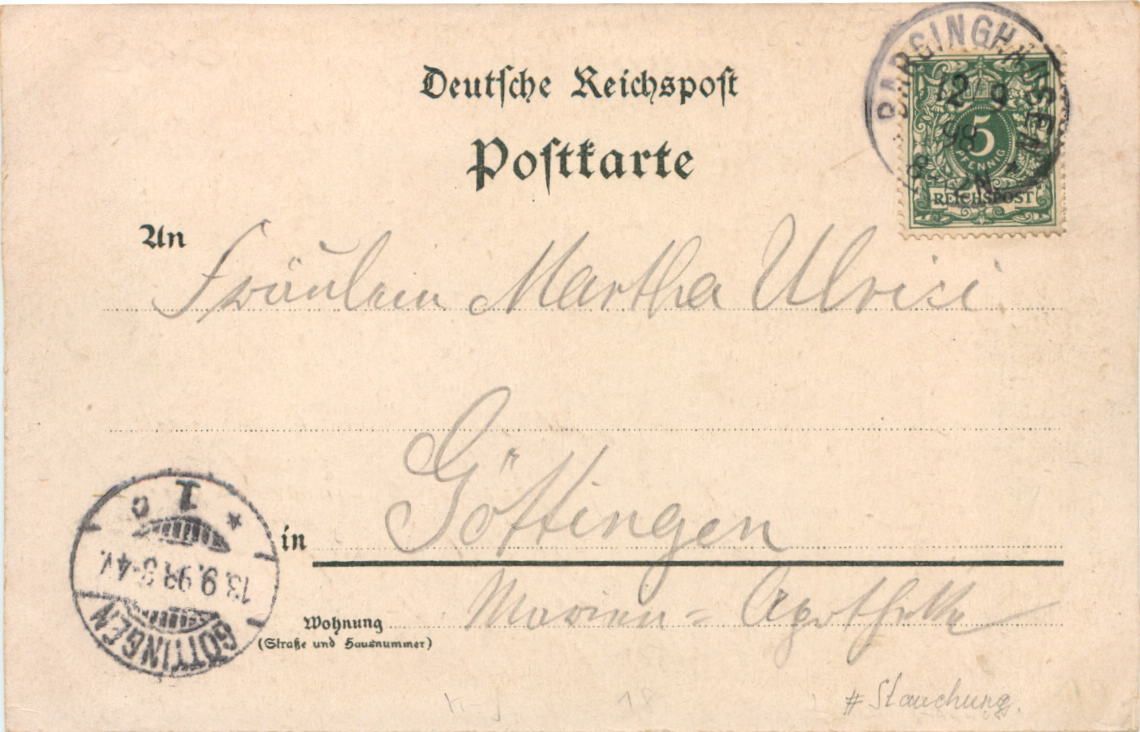 Deutsche Reichspost
Postkarte
BARSINGHAUSEN *
12/9
98
8-9N
5
PFENNIG
REICHSPOST
An
Fräulein Martha Ulrici
in
Göttingen
Wohnung
(Straße und Hausnummer)
Marien-Apotheke
GÖTTINGEN
13.9.98
3-4V.
* 1 c
# Stauchung.